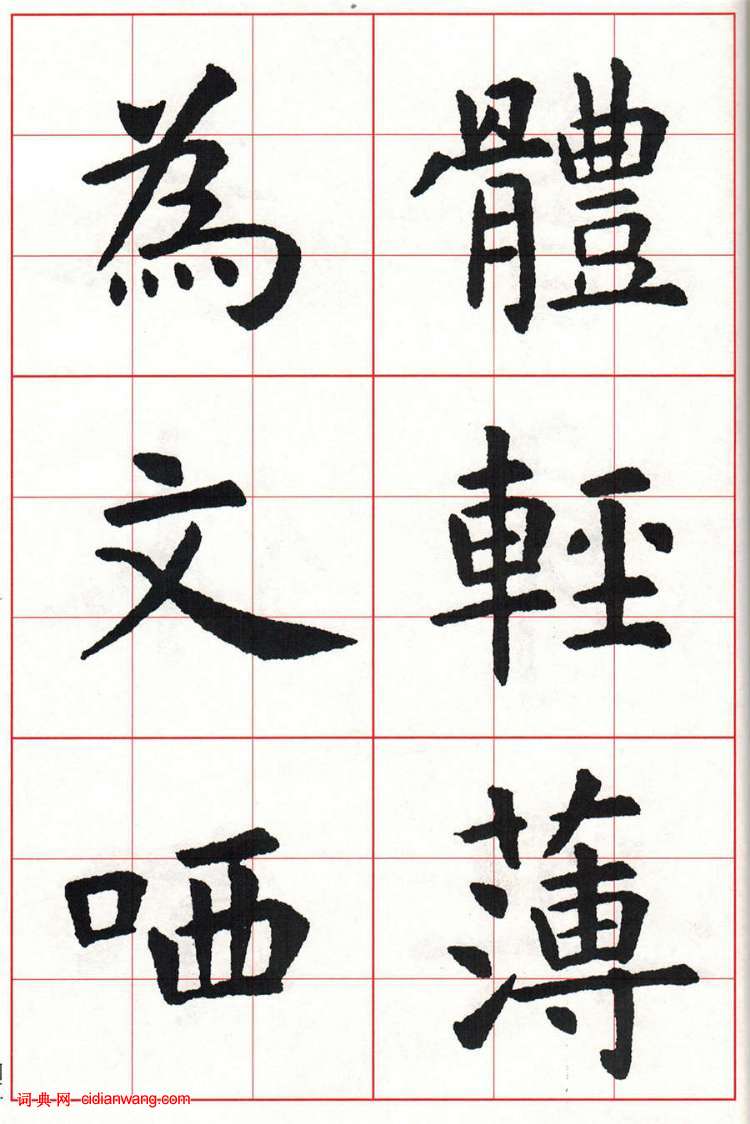 體輕薄
為文哂
词·典·网-cidianwang.com